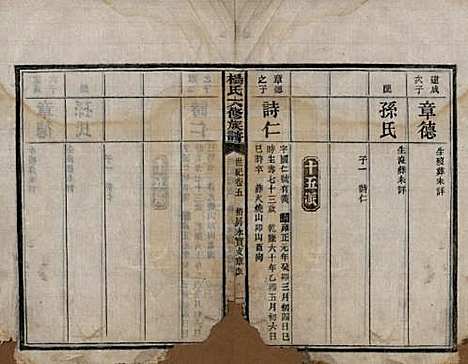 達成
次子
章德
生歿葬未詳
配
孫氏
生歿葬未詳
子一 詩仁
十五派
章德
之子
詩仁
字國仁號有義 雍正元年癸卯三月初四日巳
時生壽七十三歲 乾隆六十年乙卯五月初六日
巳時卒 葬火燒山卯山酉向
楊氏六修族譜
世紀卷五